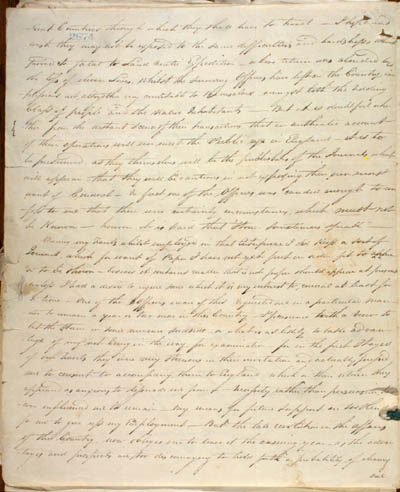 rent Countries through which they should have to travel — I hope and
wish they may not be exposed to the same difficulties and hardships which
proved so fatal to Lieut Expedition — whose return was attended by
the loss of eleven lives, whilst the surviving Officers have left the Country,
altogether my to themselves amongst both the trading
Class of people and the Native Inhabitants — But it is doubtful whe-
ther from the distant scene of their transactions that an authentic account
of their operations will ever meet the Public eye in England — it is to
be presumed as they themselves will be the publishers of the Journals which
will appear — that they will be cautious in not exposing their own errors &
want of Conduct — In fact one of the Officers was candid enough to con-
fess to me that there were certainly circumstances, which must not
be Known — however it is said that "Stones Sometimes speak"
During my travels whilst employed in that Enterprise I did keep a sort of
Journal which for want of Paper I have not yet put in order fit to appe-
ar to be Shown — besides it contained matter that is not proper should appear at present
only I had a desire to ensure some which it is my interest to conceal at least for
a time — One of the Officers aware of this requested me in a particular man-
ner to remain a year or two more in this Country — I presume with a view to
let the Storm some measure subside — or else I was likely to take advan-
tage of my not being in the way for examination for in the first Stages
of our travels they were very strenuous in their invitation and actually
me to consent to accompany them to England, which I then where they
appeared as anxious to dissuade me from it — Necessity rather than persuasion how-
ever influenced me to remain — My means for future support are too slender
for me to give up my Employment — But the late revolution in the affairs
of this Country now obliges me to leave it the ensuing year — as the advan-
tages and prospects are too discouraging to hold forth a probability of clearing
one